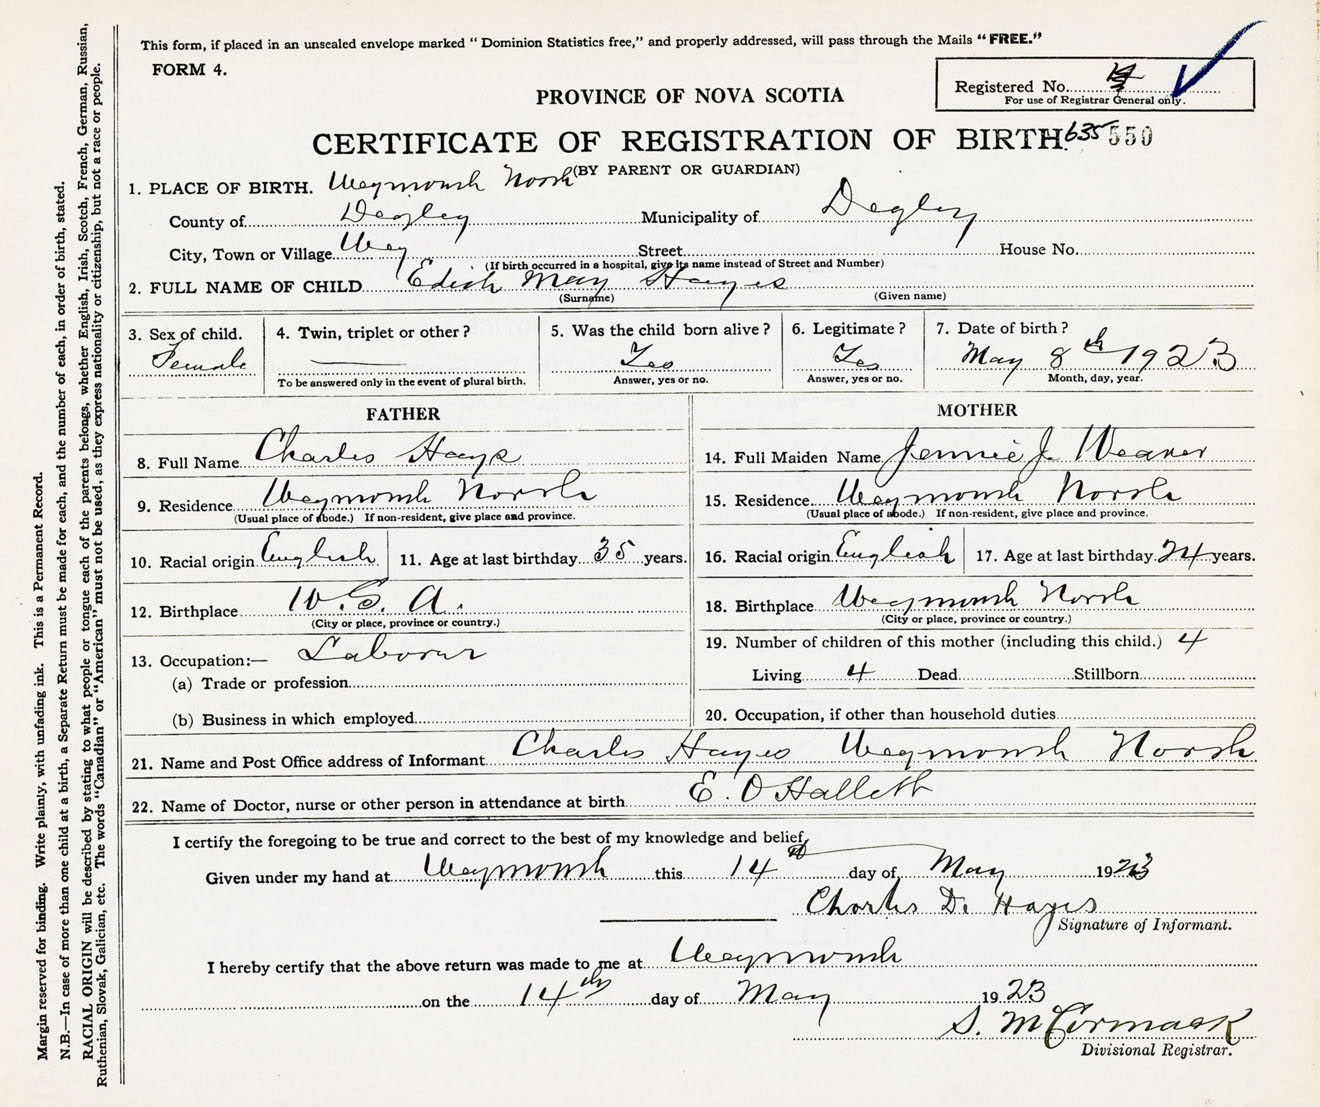 This form, if placed in an unsealed envelope marked " Dominion Statistics free," and properly addressed, will pass through the Mails " FREE."
FORM 4.
Registered No.
For use of Registrar General only.
PROVINCE OF NOVA SCOTIA
CERTIFICATE OF REGISTRATION OF BIRTH. 635 550
(BY PARENT OR GUARDIAN)
1. PLACE OF BIRTH. Weymouth North
County of Digby Municipality of Digby
City, Town or Village Wey Street House No.
(If birth occurred in a hospital, give its name instead of Street and Number)
2. FULL NAME OF CHILD Edith May Hayes
(Surname) (Given name)
3. Sex of child. 4. Twin, triplet or other? 5. Was the child born alive? 6. Legitimate? 7. Date of birth?
Female — Yes Yes May 8th 1923
To be answered only in the event of plural birth. Answer, yes or no. Answer, yes or no. Month, day, year.
FATHER
8. Full Name Charles Hays
9. Residence Weymouth North
(Usual place of abode.) If non-resident, give place and province.
10. Racial origin English 11. Age at last birthday 35 years.
12. Birthplace U.S.A.
(City or place, province or country.)
13. Occupation:— Labourer
(a) Trade or profession
(b) Business in which employed
MOTHER
14. Full Maiden Name Jennie J. Weaver
15. Residence Weymouth North
(Usual place of abode.) If non-resident, give place and province.
16. Racial origin English 17. Age at last birthday 24 years.
18. Birthplace Weymouth North
(City or place, province or country.)
19. Number of children of this mother (including this child.) 4
Living 4 Dead Stillborn
20. Occupation, if other than household duties
21. Name and Post Office address of Informant Charles Hayes Weymouth North
22. Name of Doctor, nurse or other person in attendance at birth E. O Hallett
I certify the foregoing to be true and correct to the best of my knowledge and belief,
Given under my hand at Weymouth this 14 day of May 1923
Charles D. Hayes
Signature of Informant.
I hereby certify that the above return was made to me at Weymouth
on the 14th day of May 1923
S. McCormack
Divisional Registrar.
Margin reserved for binding. Write plainly, with unfading ink. This is a Permanent Record.
N.B.—In case of more than one child at a birth, a Separate Return must be made for each, and the number of each, in order of birth, stated.
RACIAL ORIGIN will be described by stating to what people or tongue each of the parents belongs, whether English, Irish, Scotch, French, German, Russian,
Ruthenian, Slovak, Galician, etc. The words "Canadian" or "American" must not be used, as they express nationality or citizenship, but not a race or people.